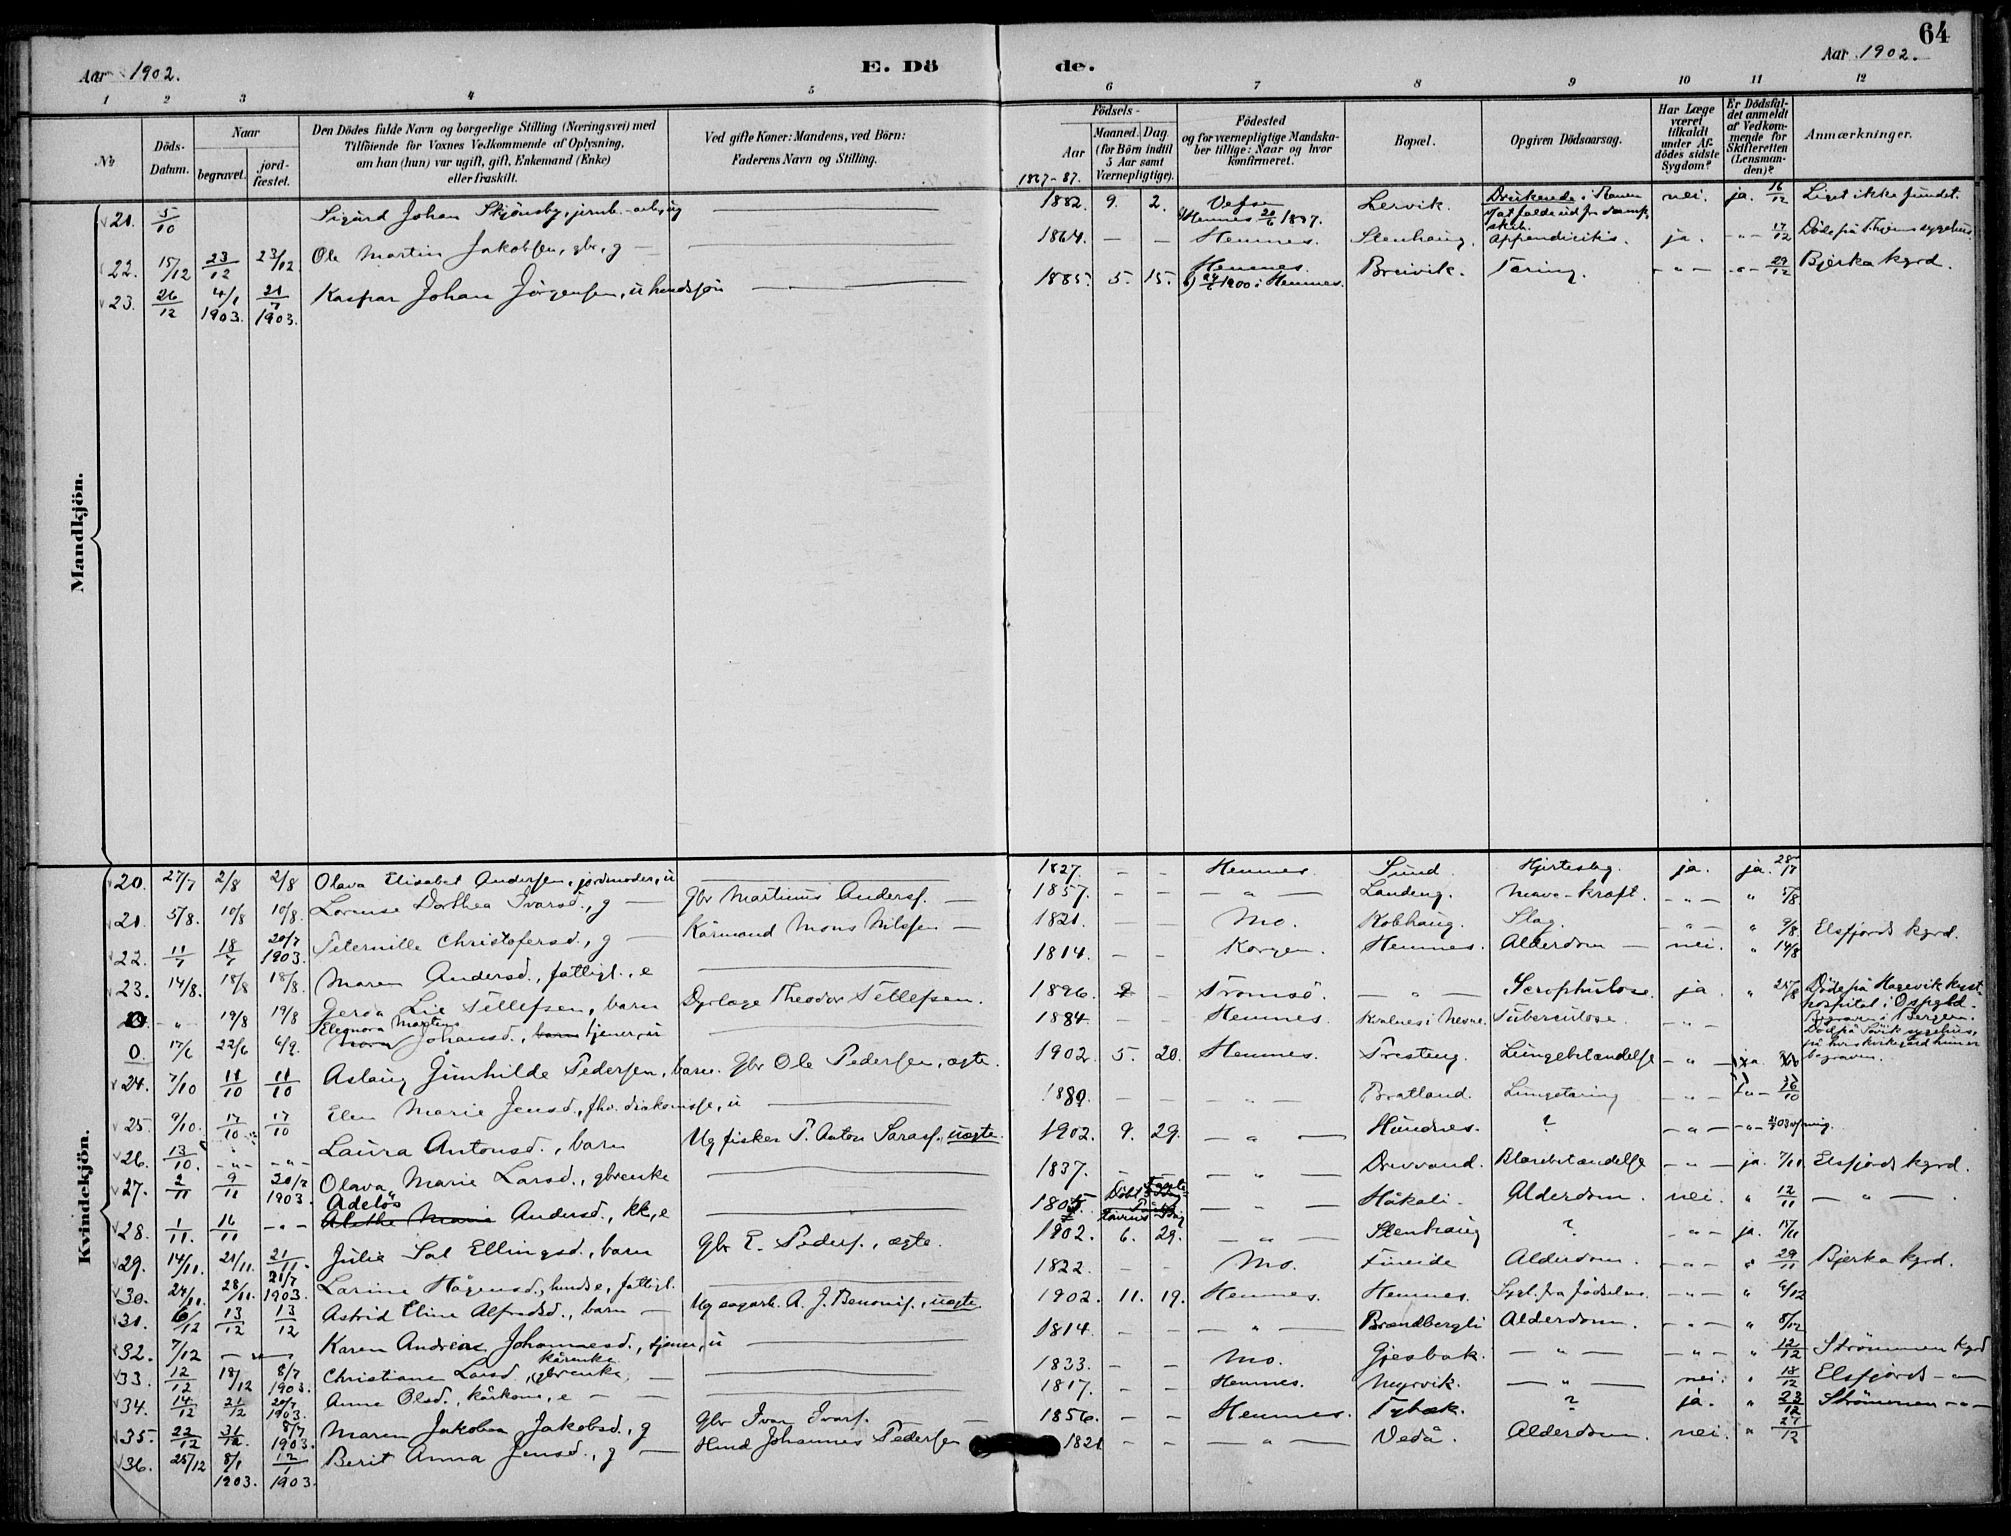 64
Aar 1902.
E. Dö
de.
Aar 1902.
1 2 3 4 5 6 7 8 9 10 11 12
No
Döds-Datum.
Naar
begravet.
jord-fæstet.
Den Dödes fulde Navn og borgerlige Stilling (Næringsvei) med
Tilföiende for Voxnes Vedkommende af Oplysning,
om han (hun) var ugift, gift, Enkemand (Enke)
eller fraskilt.
Ved gifte Koner: Mandens, ved Börn:
Faderens Navn og Stilling.
Födsels-
Aar
1867-87.
Maaned. Dag.
(for Börn indtil
5 Aar samt
Værnepligtige).
Födested
og for værnepligtige Mandska-
ber tillige: Naar og hvor
konfirmeret.
Bopæl.
Opgiven Dödsaarsag.
Har Læge
været
tilkaldt
under Af-
dödes sidste
Sygdom?
Er Dödsfal-
det anmeldt
af Vedkom-
mende for
Skifteretten
(Lensman-
den)?
Anmærkninger.
Mandkjön.
21. 5/10 Sigurd Johan Skjönsby, jernb.-arb, ug 1882. 9. 2. Vefsn Hemnes 20/6 1897. Lervik. Drukende i Ranen v/at falde ud fra dampskib. nei. ja. 16/12 Liget ikke fundet.
22. 15/12 23/12 23/12 Ole Martin Jakobsen, gbr, g — 1864. — — Hemnes. Stenhaug. Appendicitis. ja. -"- 17/12 Döde på Thjems sygehus
23. 26/12 4/1 1903. 21/7 1903. Kaspar Johan Jörgensen, u husdsön 1885. 5. 15. Hemnes. 24/6 1900 i Hemnes. Breivik. Tæring. -"- -"- 29/12 Bjerka kgrd.
Kvindekjön.
20. 27/7 2/8 2/8 Olava Elisabet Andersen, jordmoder, u 1827. - - Hemnes Sund Hjerteslag ja. ja. 28/7
21. 5/8. 10/8 10/8. Lorense Dorthea Ivarsd., g — Gbr Martinus Anders. — 1857. - - — " — Landeng. Mave-kræft. -"- " 5/8
22. 11/7 18/7 20/7 1903. Peternille Christofersd., g — Kårmand Mons Nilssen — 1821. — Mo. Kobhaug. Slag. -"- " 9/8. Elsfjords kgrd.
23. 14/8. 18/8 18/8. Maren Andersd., fattigl., e 1814. - - Korgen. Hemnes. Alderdom — nei. " 14/8
0 -"- 19/8 19/8 Gerda Lie Tellefsen, barn Dyrlæge Theodor Tellefsen. 1896. - Tromsö. — " — Scrophulose. ja. " 25/8 Döde på Hagevik kyst-hospital i Os pgld. Begraven i Bergen.
0. 17/6 22/6 6/9. Eleonora Martens Johansd., tjener, u 1884. Hemnes. Kvalnes i Nesne. Tuberculose. -"- Död på sygehus,
24. 7/10 11/10 11/10 Aslaug Gunhilde Pedersen, barn. Gbr Ole Pedersen, ægte. 1902. 5. 20. Hemnes. Presteng. Lungebetændelse -"- ja.
25. 9/10. 17/10 17/10 Elen Marie Jensd., fhv. diakonisse, u 1880. - - -"- Bratland. Lungetæring -"- 16/10
26. 13/10. -"- -"- Laura Antonsd., barn Ug fisker P. Anton Saras., uægte. 1902. 9. 29. — " — Hundnes. ? -"- -"-
27. 2/11 9/11 20/7 1903. Olava Marie Larsd., gbrenke 1837. - — " — Drevvand. Blærebetændelse -"- ja. 7/11 Elsfjords kgrd.
28. 1/11. 16/11 -"- Adelös Alethe Marie Andersd., kk, e 1805 — " — Håkali. Alderdom. nei. " 12/11 — " —
29. 14/11. 21/11. 21/11. Julie Sal Ellingsd., barn Gbr E. Peders., ægte. 1902. 6. 29. — " — Stenhaug ? -"- ja. 15/11
30. 24/11. 28/11. 21/7 1903. Larine Hågensd., husds e, fattigl. 1822. - - Mo. Fineide Alderdom. -"- " 29/11 Bjerka kgrd.
31. 6/12 13/12 13/12 Astrid Eline Alfredsd., barn — Ug sagarb. A. J. Benonis., uægte. 1902. 11. 19. Hemnes. Hemnes. Sygl. fra födselen. -"- " 6/12
32. 7/12 -"- Karen Andrea Johannesd., tjener, u 1814. - - — " — Brændbergli Alderdom. -"- " 8/12
33. 12/12 18/12 8/7 1903. Christiane Larsd., gbrenke, kårenke 1833. - - Mo. Gjesbak. — " — -"- " 12/12 Strömmen kgrd
34. 14/12 21/12 20/7 1903. Anne Olsd., kårkone, e — 1817. - - Hemnes. Myrvik. — " — nei. " 18/12 Elsfjords -"-
35. 22/12 31/12. 8/7 1903. Maren Jakobea Jakobsd., g Gbr Ivar Ivars. — 1856. - - Hemnes. Tybæk. ? ja. " 23/12 Strömmen -"-
36. 25/12 8/1 1903. 12/1 1903. Berit Anna Jensd., g — Husd Johannes Pedersen 1821 - - — " — Vedå. Alderdom. nei. " 27/12